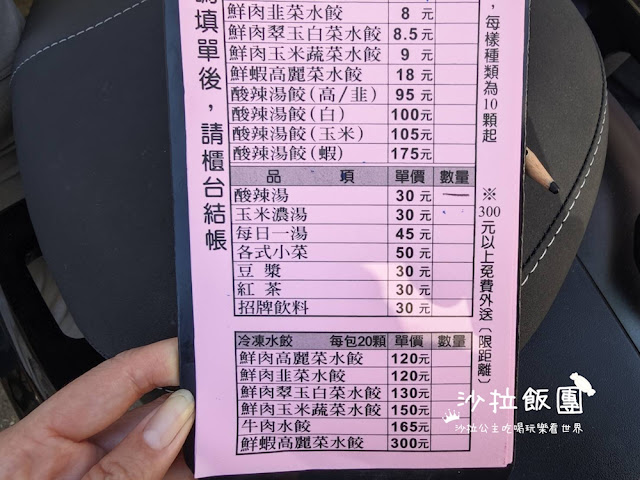 填單後，請櫃台結帳
鮮肉韭菜水餃 8 元
鮮肉翠玉白菜水餃 8.5元
鮮肉玉米蔬菜水餃 9 元
鮮蝦高麗菜水餃 18 元
酸辣湯餃(高/韭) 95 元
酸辣湯餃(白) 100元
酸辣湯餃(玉米) 105元
酸辣湯餃(蝦) 175元
品 項 單價 數量
酸辣湯 30 元 一
玉米濃湯 30 元
每日一湯 45 元
各式小菜 50 元
豆 漿 30 元
紅 茶 30 元
招牌飲料 30 元
冷凍水餃 每包20顆 單價 數量
鮮肉高麗菜水餃 120元
鮮肉韭菜水餃 120元
鮮肉翠玉白菜水餃 130元
鮮肉玉米蔬菜水餃 150元
牛肉水餃 165元
鮮蝦高麗菜水餃 300元
，每樣種類為10顆起
※300元以上免費外送〔限距離〕
沙拉飯團
沙拉公主吃喝玩樂看世界